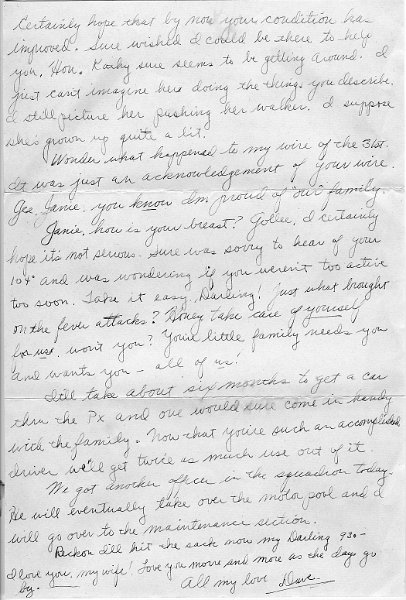 Certainly hope that by now your condition has
improved. Sure wished I could be there to help
you, Hon. Kathy sure seems to be getting around. I
just can't imagine her doing the things you describe.
I still picture her pushing her walker. I suppose
she's grown up quite a bit.
Wonder what happened to my wire of the 31st.
It was just an acknowledgement of your wire.
Gee, Janie, you know I'm proud of "our" family.
Janie, how is your breast? Gollee, I certainly
hope its not serious. Sure was sorry to hear of your
104° and was wondering if you weren't too active
too soon. Take it easy, Darling! Just what brought
on the fever attacks? Honey take care of yourself
for us, won't you? Your little family needs you
and wants you - all of us!
It'll take about six months to get a car
thru the Px and one would sure come in handy
with the family. Now that you're such an accomplished
driver we'll get twice as much use out of it.
We got another officer in the squadron today.
He will eventually take over the motor pool and I
will go over to the maintenance section.
Reckon I'll hit the sack now my Darling 930-
I love you, my wife! Love you more and more as the days go
by.
All my love Dave